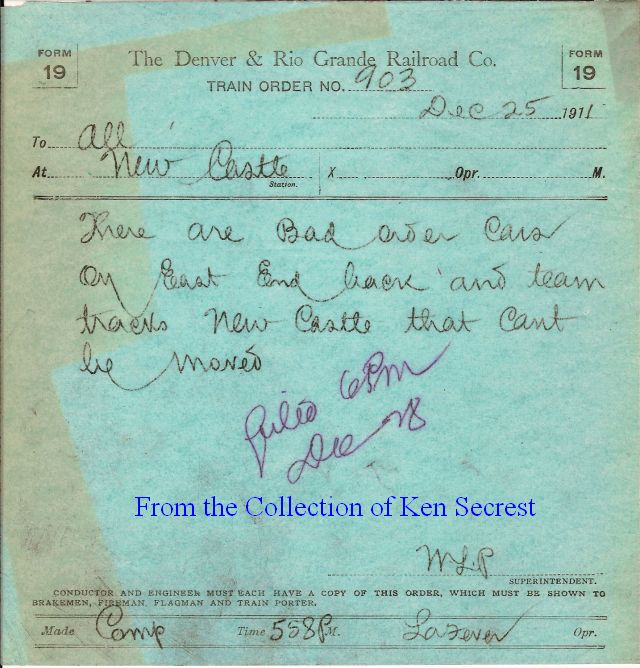 FORM 19
The Denver & Rio Grande Railroad Co.
FORM 19
TRAIN ORDER NO. 903
Dec 25 1911
To All
At New Castle X Opr. M.
Station.
There are Bad order Cars
on East End back and team
tracks New Castle that cant
be moved
6 PM
Dec 28
From the Collection of Ken Secrest
W L P
SUPERINTENDENT.
CONDUCTOR AND ENGINEER MUST EACH HAVE A COPY OF THIS ORDER, WHICH MUST BE SHOWN TO
BRAKEMEN, FIREMAN, FLAGMAN AND TRAIN PORTER.
Made Comp Time 558 P M. Lazever Opr.